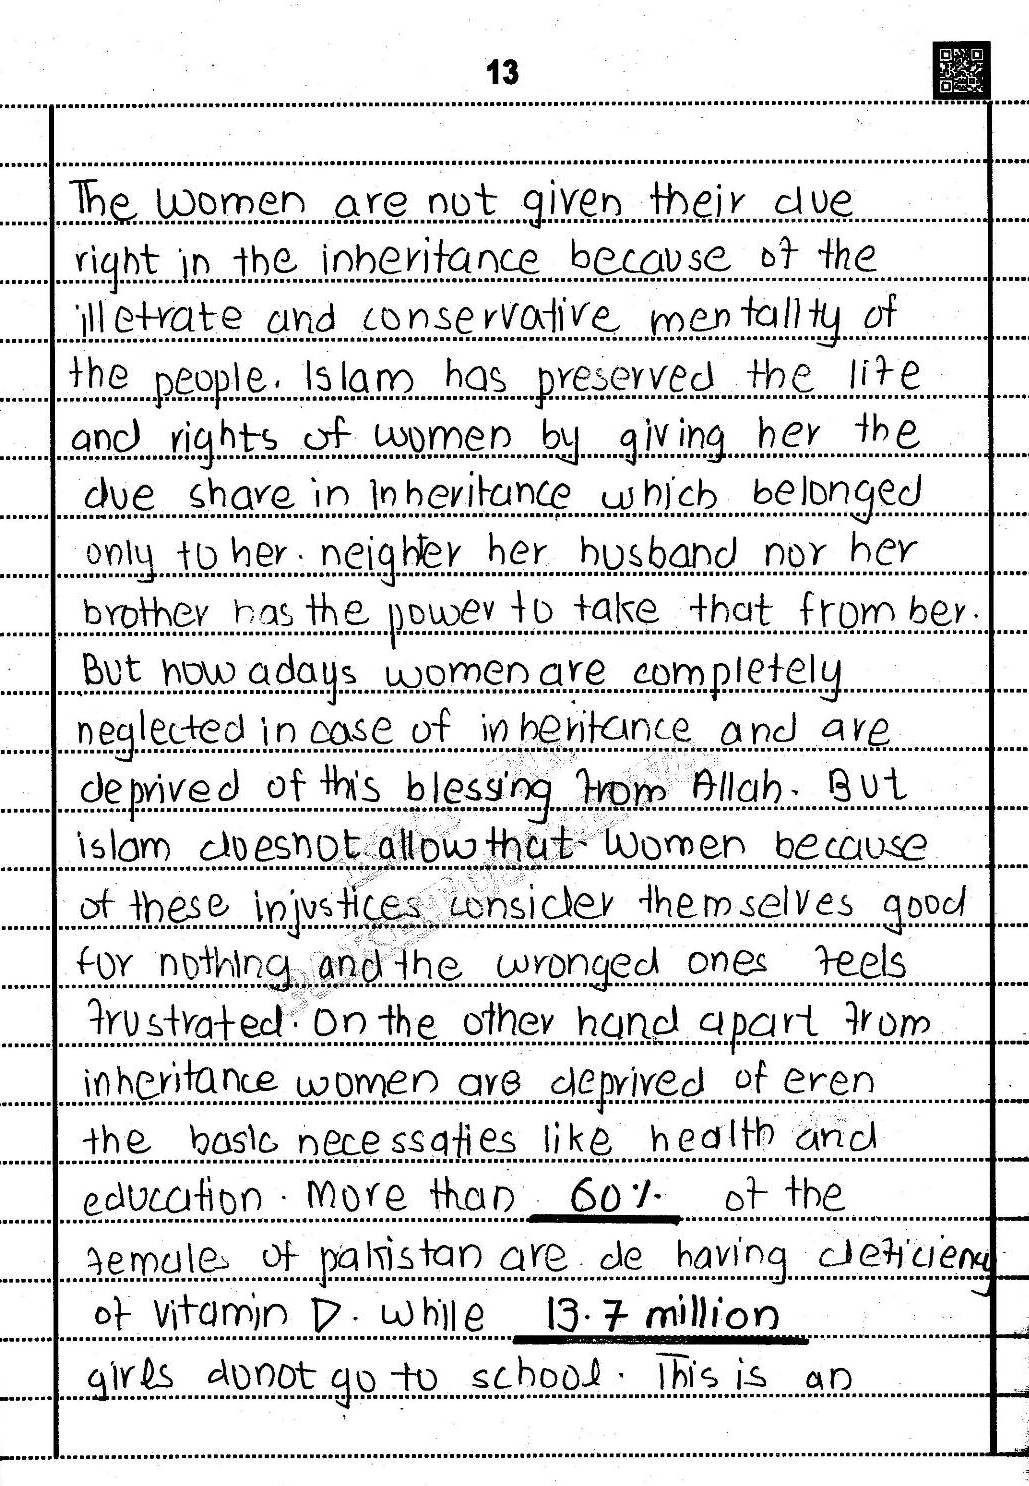 13
The women are not given their due
right in the inheritance because of the
illetrate and conservative mentality of
the people. Islam has preserved the life
and rights of women by giving her the
due share in Inheritance which belonged
only to her. neighter her husband nor her
brother has the power to take that from her.
But now adays women are completely
neglected in case of inheritance and are
deprived of this blessing from Allah. But
islam doesnot allow that. Women because
of these injustices consider themselves good
for nothing and the wronged ones feels
frustrated. On the other hand apart from
inheritance women are deprived of even
the basic necessaties like health and
education. More than 60% of the
females of pakistan are de having deficieny
of vitamin D. while 13.7 million
girls donot go to school. This is an